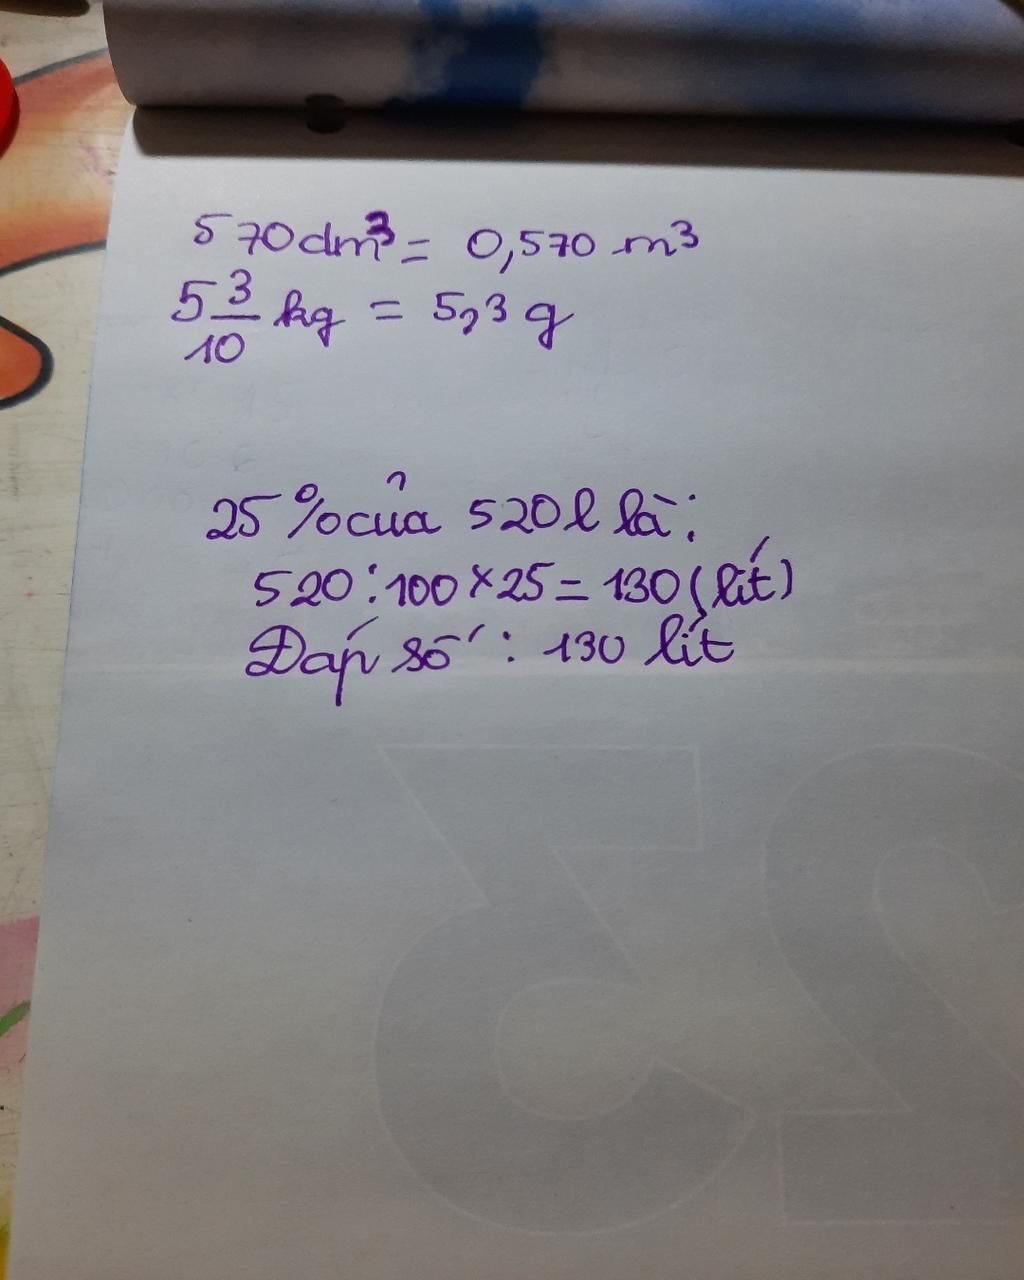 570dm³ = 0,570 m³
5 3/10 kg = 5,3 g
25% của 520l là:
520 : 100 x 25 = 130 (lít)
Đáp số : 130 lít